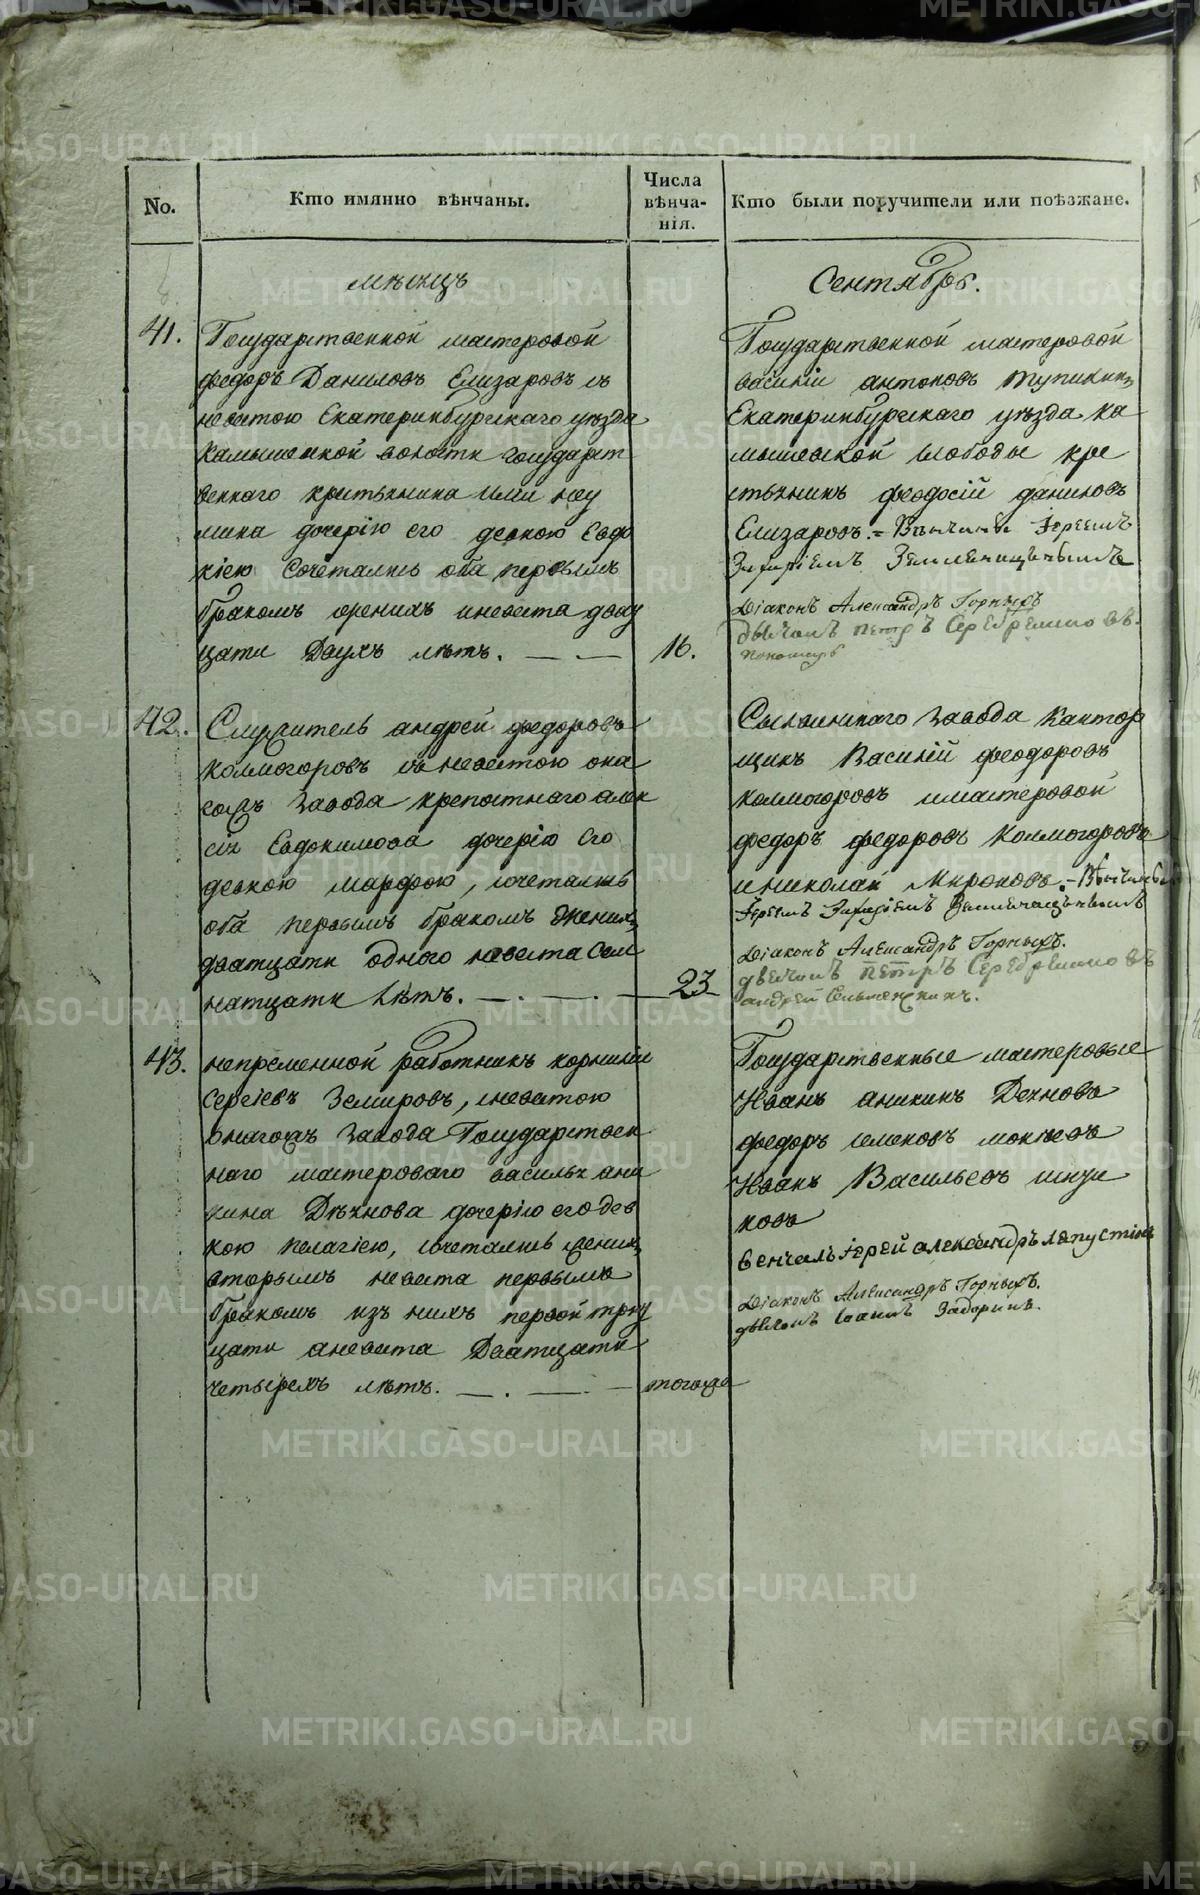 No.
Кто имянно вѣнчаны.
Числа
вѣнча-
нія.
Кто были поручители или поѣзжане.
мѣсяцъ
Сентябрь.
41.
Государственной мастеровой
федоръ Даниловъ Елизаровъ съ
невестою Екатеринбургскаго уѣзда
Камышевской волости государст
веннаго крестьянина
дочерію его девкою Евдо
кіею Сочетались оба первымъ
бракомъ женихъ иневеста двау
цати Двухъ лѣтъ.
16.
Государственной мастеровой
василіи антоновъ
Екатеринбургскаго уѣзда ка
мышевской слободы кре
стьянинъ феодосій даниловъ
Елизаровъ.= Вѣнчаны Іереемъ
Діаконъ Александръ Горныхъ
дьячокъ петръ Серебренниковъ.
пономарь
42.
Служитель андрей федоровъ
Колмогоровъ съ невестою она
гожъ завода крепостнаго алек
сія Евдокимова дочерію его
девкою марфою, сочетались
оба первымъ бракомъ жених
дватцати одного невеста сем
натцати лѣтъ.
23
завода Кантор
щикъ Василій феодоровъ
колмогоровъ имастеровой
федоръ федоровъ Колмогоровъ
иниколай Мироновъ.=Вѣнчаны
Діаконъ Александръ Горныхъ.
дьячокъ петръ Серебренниковъ
андрей
43.
непременной работникъ корнилій
Сергіевъ Земировъ, сневестою
онагожъ завода Государствен
наго мастероваго василья ани
кина Дехнова дочерію его дев
кою пелагіею, сочетались жених
вторымъ невеста первымъ
бракомъ изъ нихъ первой тритц
цати аневеста Дватцати
четырехъ лѣтъ.
тогожъ
Государственные мастеровые
Иванъ аникинъ Дехновъ
федоръ семеновъ
Иванъ Васильевъ
ковъ
венчалъ іерей александръ лапустинъ
Діаконъ Александръ Горныхъ.
дьячокъ Іоаннъ Задоринъ.